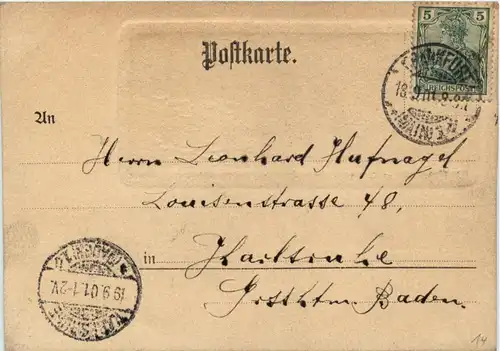 5
REICHSPOST
Postkarte.
FRANKFURT
18.9.01.
(MAIN)
An
Herrn Leonhard Hufnagel
Louisenstrasse 48,
in Karlsruhe
Baden.
KARLSRUHE
19.9.01.1-2V.
14